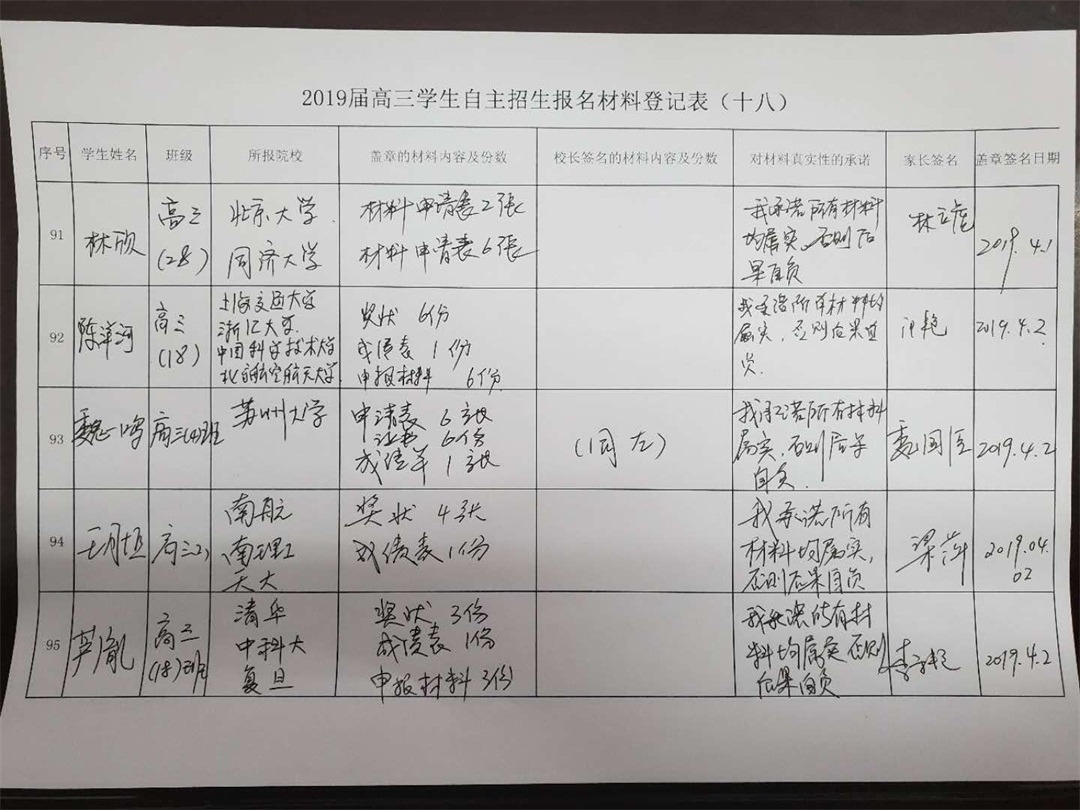 2019届高三学生自主招生报名材料登记表（十八）
序号 学生姓名 班级 所报院校 盖章的材料内容及份数 校长签名的材料内容及份数 对材料真实性的承诺 家长签名 盖章签名日期
91 林欣
高三
(28)
北京大学
同济大学
材料申请表2张
材料申请表6张
我承诺所有材料
均属实，否则后
果自负
2019.4.1
92 陈洋河
高三
(18)
上海交通大学
浙江大学
中国科学技术大学
北京航空航天大学
奖状 6份
成绩表 1份
申报材料 6份
我承诺所有材料均
属实，否则后果自
负.
2019.4.2
93 魏一鸣
苏州大学
申请表 6张
证书 6份
成绩单 1张
(同左)
我承诺所有材料
属实，否则后果
自负.
2019.4.2
94
南航
南理工
天大
奖状 4张
成绩表 1份
我承诺所有
材料均属实，
否则后果自负
梁萍
2019.04.
02
95
高三
(18)班
清华
中科大
复旦
奖状 3份
成绩表 1份
申报材料 3份
我承诺所有材
料均属实 否则
后果自负
2019.4.2